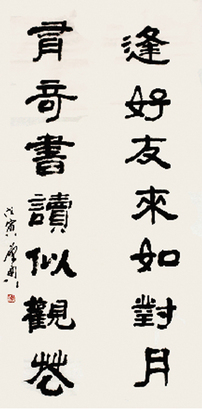 逢好友來如對月
有奇書讀似觀花
戊寅